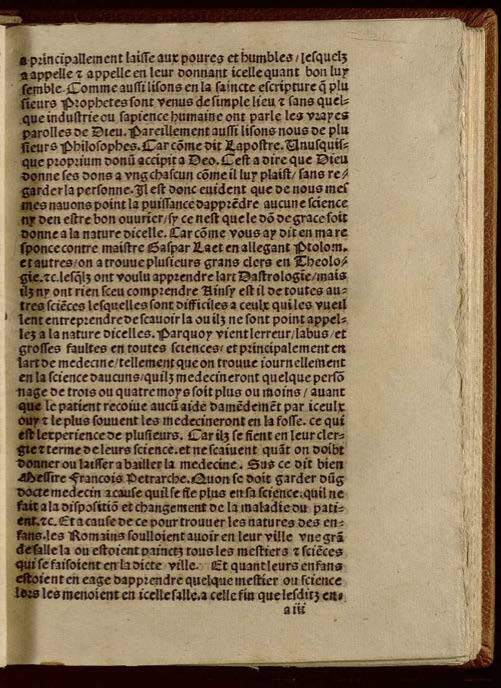 a principallement laisse aux poures et humbles / lesquelz
a appelle ⁊ appelle en leur donnant icelle quant bon luy
semble. Comme aussi lisons en la saincte escripture q̃ plu
sieurs Prophetes sont venus de simple lieu ⁊ sans quel⸗
que industrie ou sapience humaine ont parle les vrayes
parolles de Dieu. Pareillement aussi lisons nous de plu
sieurs Philosophes. Car cõme dit Lapostre. Unusquis⸗
que proprium donũ accipit a Deo. Cest a dire que Dieu
donne ses dons a vng chascun cõme il luy plaist / sans re⸗
garder la personne. Il est donc euident que de nous mes
mes nauons point la puissance dapprẽdre aucune science
ny den estre bon ouurier / sy ce nest que le dõ de grace soit
donne a la nature dicelle. Car cõme vous ay dit en ma re
sponce contre maistre Gaspar Laet en allegant Ptolom.
et autres / on a trouue plusieurs grans clers en Theolo⸗
gie. ⁊c. lesq̃lz ont voulu apprendre lart Dastrologie / mais
ilz ny ont rien sceu comprendre Ainsy est il de toutes au⸗
tres sciẽces lesquelles sont difficiles a ceulx qui les vueil
lent entreprendre de scauoir la ou ilz ne sont point appel⸗
lez a la nature dicelles. Parquoy vient lerreur / labus / et
grosses faultes en toutes sciences / et principalement en
lart de medecine / tellement que on trouue iournellement
en la science daucuns / quilz medecineront quelque persõ
nage de trois ou quatre moys soit plus ou moins / auant
que le patient recoiue aucũ aide damẽdemẽt par iceulx
ouy ⁊ le plus souuent les medecineront en la fosse. ce qui
est lexperience de plusieurs. Car ilz se fient en leur cler⸗
gie ⁊ terme de leurs science. et ne scaiuent quãt on doibt
donner ou laisser a bailler la medecine. Sus ce dit bien
Messire Francois Petrarche. Quon se doit garder dũg
docte medecin a cause quil se fie plus en sa science: quil ne
fait a la dispositiõ et changement de la maladie du pati⸗
ent. ⁊c. Et a cause de ce pour trouuer les natures des en⸗
fans. les Romains soulloient auoir en leur ville vne grã
de salle la ou estoient painctz tous les mestiers ⁊ sciẽces
qui se faisoient en la dicte ville. Et quant leurs enfans
estoient en eage dapprendre quelque mestier ou science
lors les menoient en icelle salle. a celle fin que lesditz en⸗
a iii